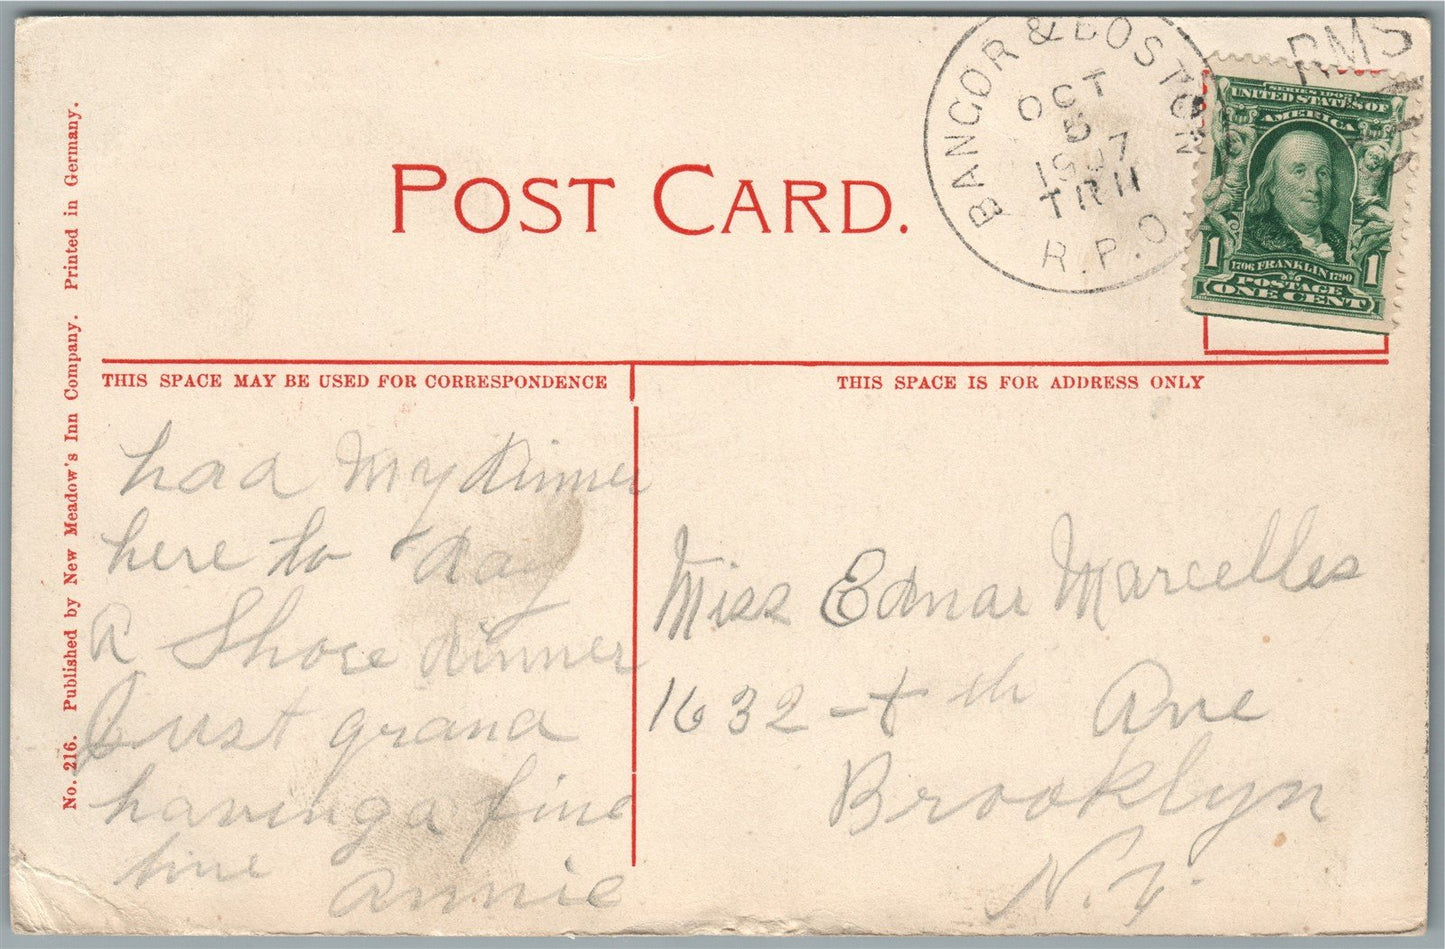 POST CARD.
BANGOR & BOSTON
OCT
5
1907
TR 11
R.P.O.
RMS
SERIES 1902
UNITED STATES OF
AMERICA
1 1
1706 FRANKLIN 1790
POSTAGE
ONE CENT
No. 216. Published by New Meadow's Inn Company. Printed in Germany.
THIS SPACE MAY BE USED FOR CORRESPONDENCE
THIS SPACE IS FOR ADDRESS ONLY
had my dinner
here to day
A Shore dinner
Just grand
having a fine
time
Annie
Miss Ednar Marcelles
1632 - th Ave
Brooklyn
N.Y.